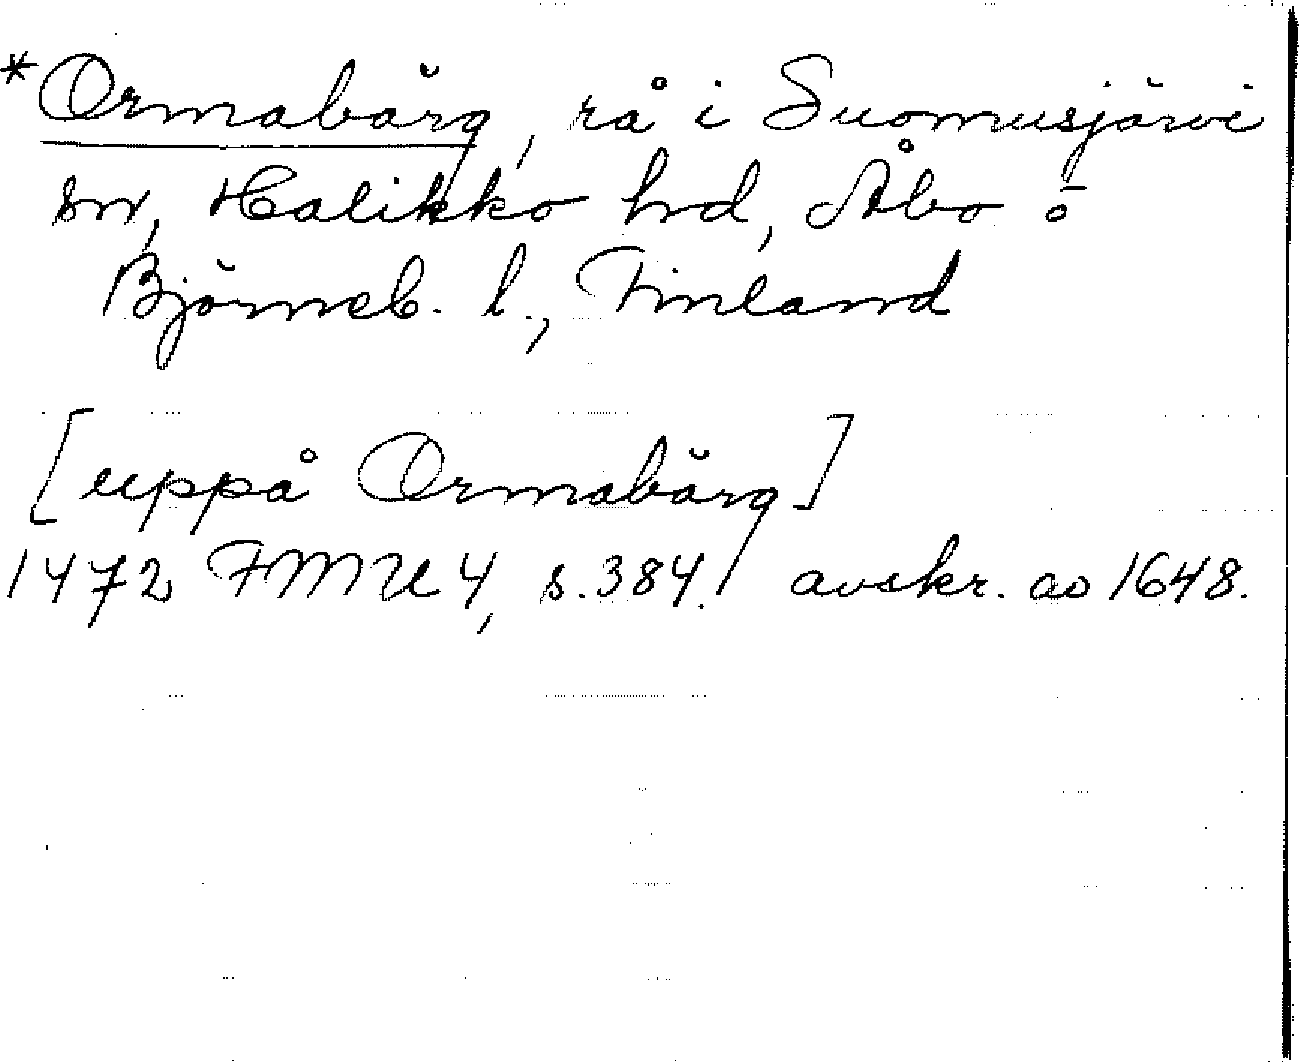 *Ormabärg, rå i Suomusjärvi
sn, Halikko hrd, Åbo o
Björneb. l., Finland
[uppå Ormabärg]
1472 FMU 4, s. 384. avskr. ao 1648.